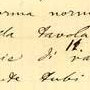 orma norm
la tavola
12.
ie di va
te tubi